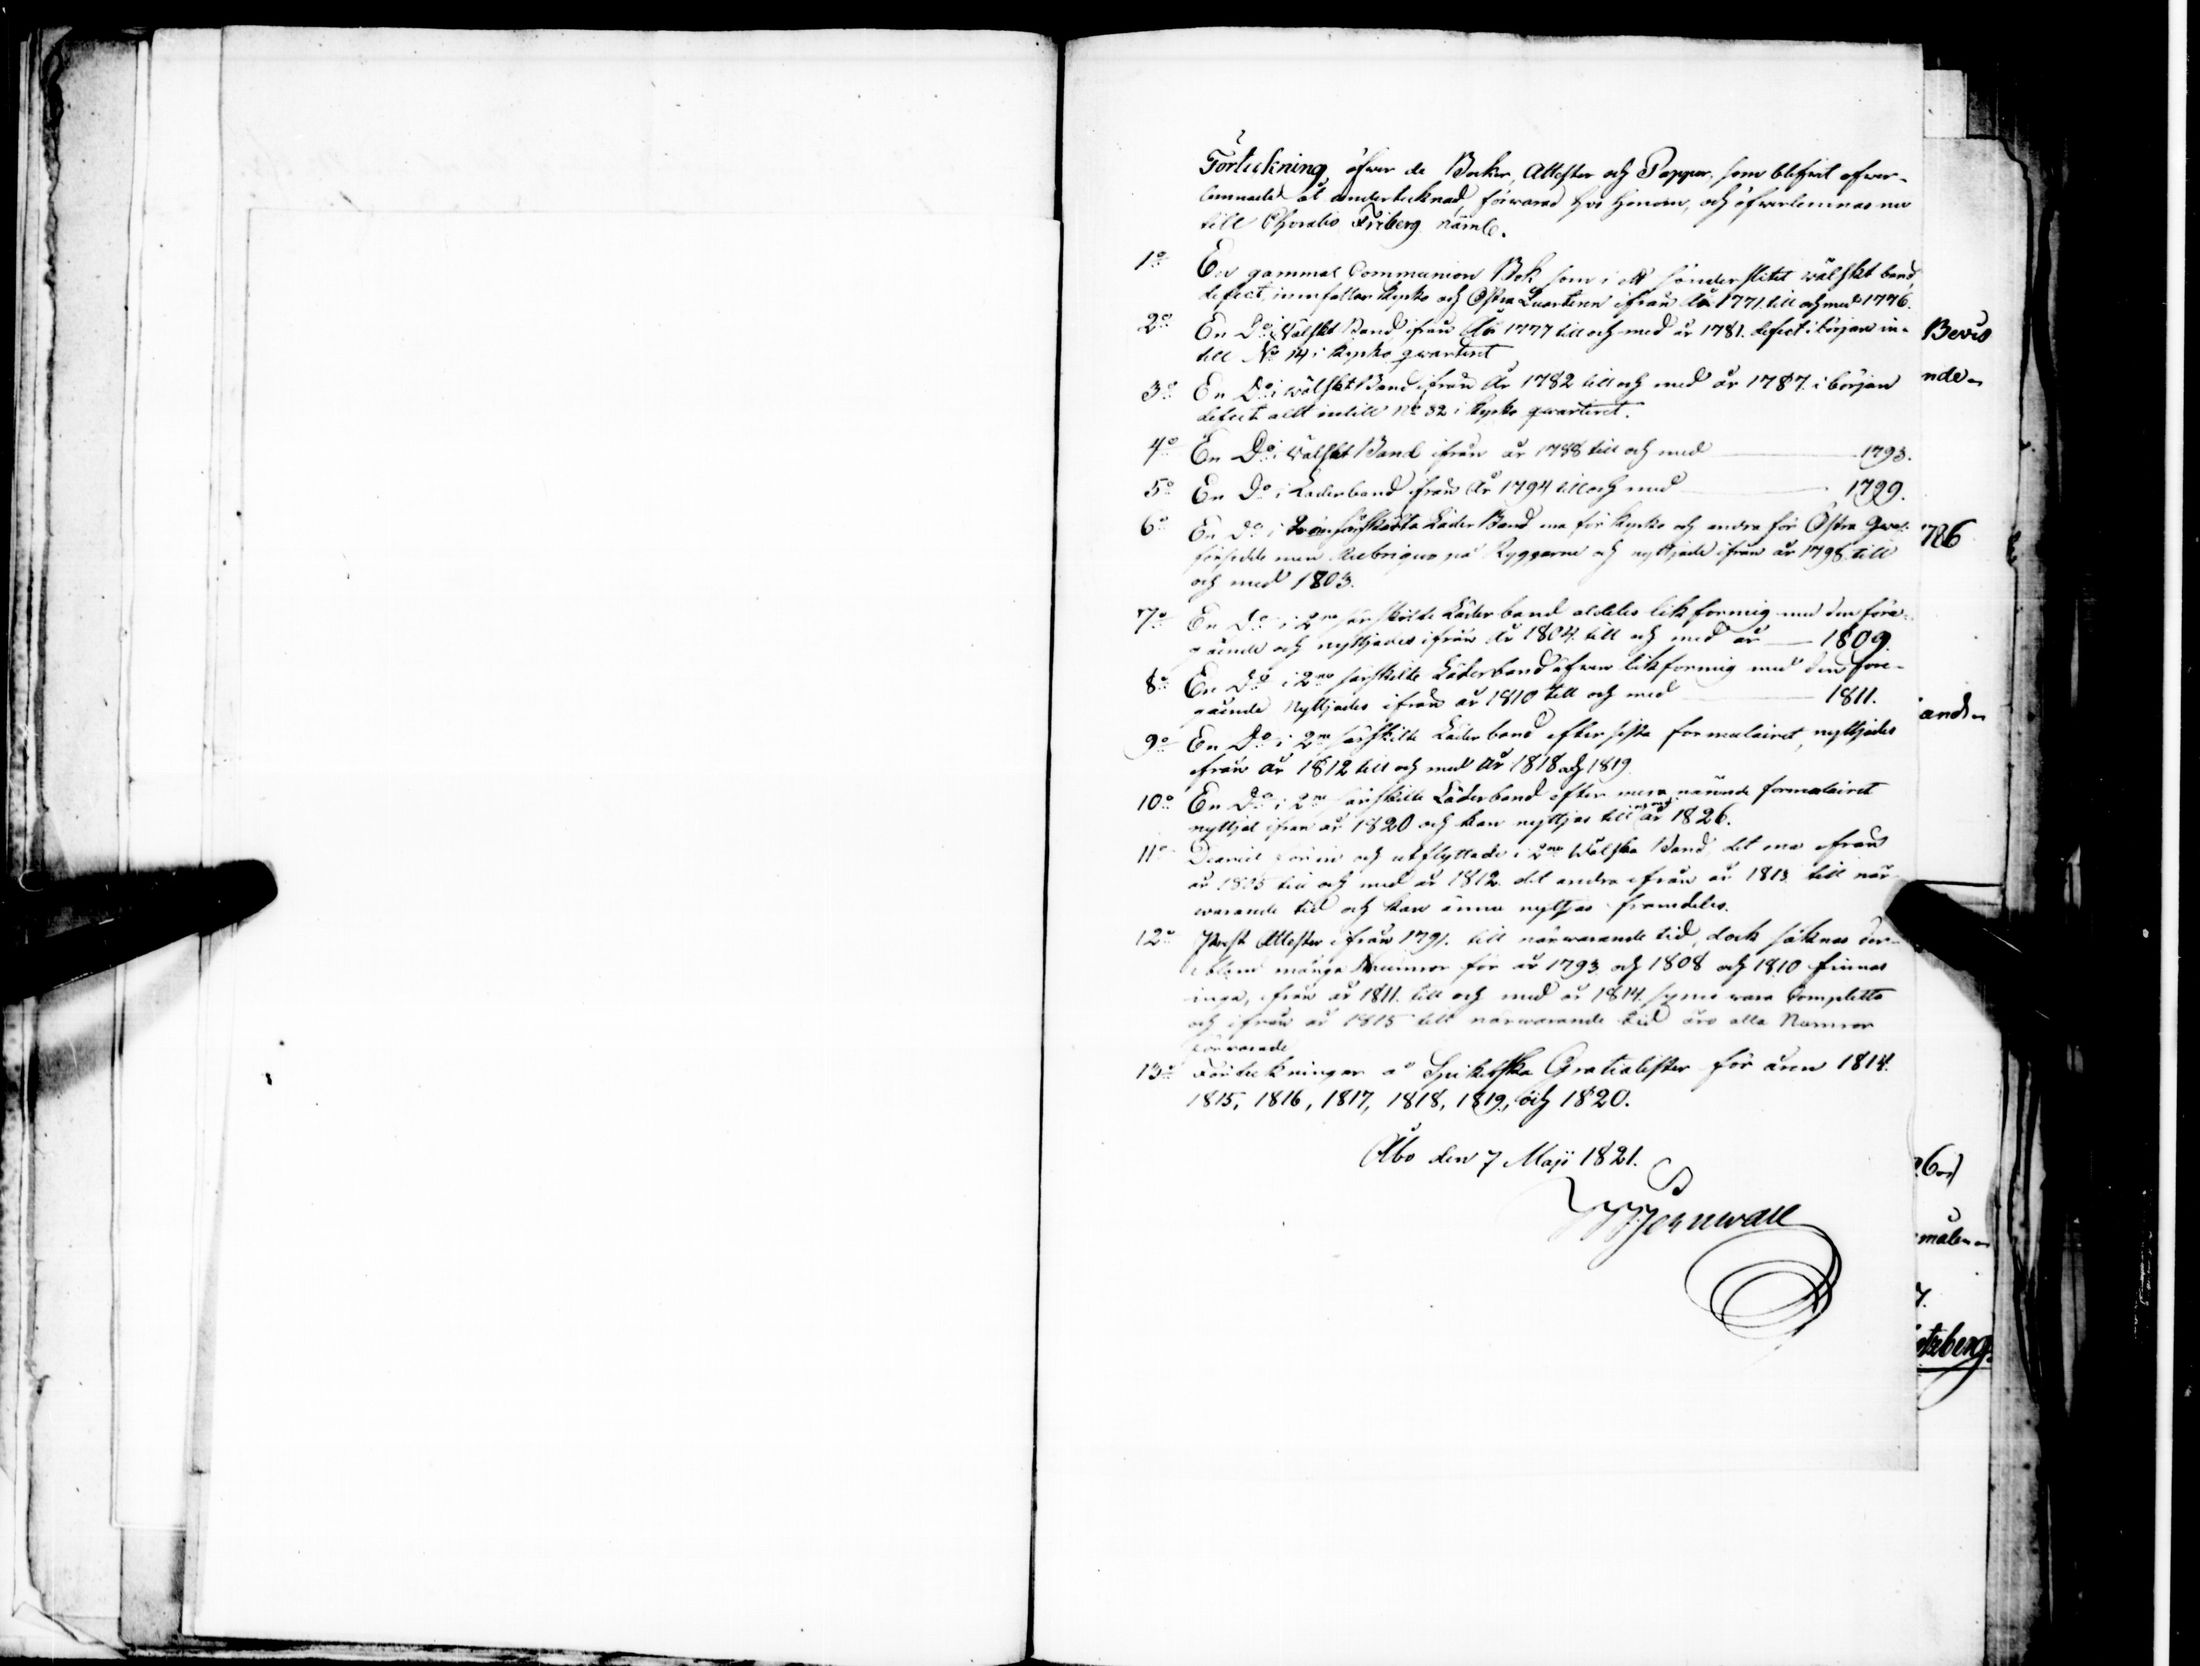 Förteckning öfver de Böcker, Attester och Papper, som blifvit öfver-
lemnade åt undertecknad, förvarad hos honom, och öfverlemnas nu
till Choralis Friberg näml.
1o En gammal Communion Bok som i ett sönderslitet wälskt band,
defect, innefattar Kyrko och Östra Quarteren ifrån år 1771 till och med 1776.
2o En Do i Wälskt Band ifrån År 1777 till och med år 1781. defect i början in-
till No 14 i Kyrko qwarteret
3o En Do i wälskt Band ifrån År 1782 till och med år 1787. i början
defect allt intill No 32 i Kyrko qwarteret.
4o En Do i Wälskt Band ifrån år 1788 till och med 1793.
5o En Do i Läderband ifrån År 1794 till och med 1799.
6o En Do i Twänne särskilta Läder Band ena för Kyrko och andra för Östra Qwar:
försedde med Rubriquer på Ryggarne och nyttjade ifrån år 1798 till
och med 1803.
7o En Do i 2ne särskilte Läderband aldeles likformig med den före-
gående och nyttjades ifrån År 1804 till och med år 1809.
8o En Do i 2ne särskilte Läderband äfwen likformig med den före-
gående Nyttjades ifrån år 1810 till och med 1811.
9o En Do i 2ne särskilte Läderband efter sista formulairet, nyttjades
ifrån År 1812 till och med År 1818 och 1819.
10o En Do i 2ne särskilte Läderband efter nu warande formulairet
nyttjat ifrån år 1820 och kan nyttjas till och med år 1826.
11o in och utflyttade i 2ne Wälska Band, det ena ifrån
år 1805 till och med år 1812. det andra ifrån år 1813 till när-
warande tid och kan ännu nyttjas framdeles.
12o Prest Attester ifrån 1791. till närwarande tid, dock saknas der-
ibland många Nummror för år 1793 och 1808 och 1810 finnas
inga, ifrån år 1811. till och med år 1814. synes wara Completta
och ifrån år 1815 till närwarande tid äro alla Numror
förwarade
13o Förteckningar å Spikerska Gratialister för åren 1814.
1815, 1816, 1817, 1818, 1819, och 1820.
Åbo den 7 Maji 1821.
Bevis
nde
1786
and
målen
7.
tzberg